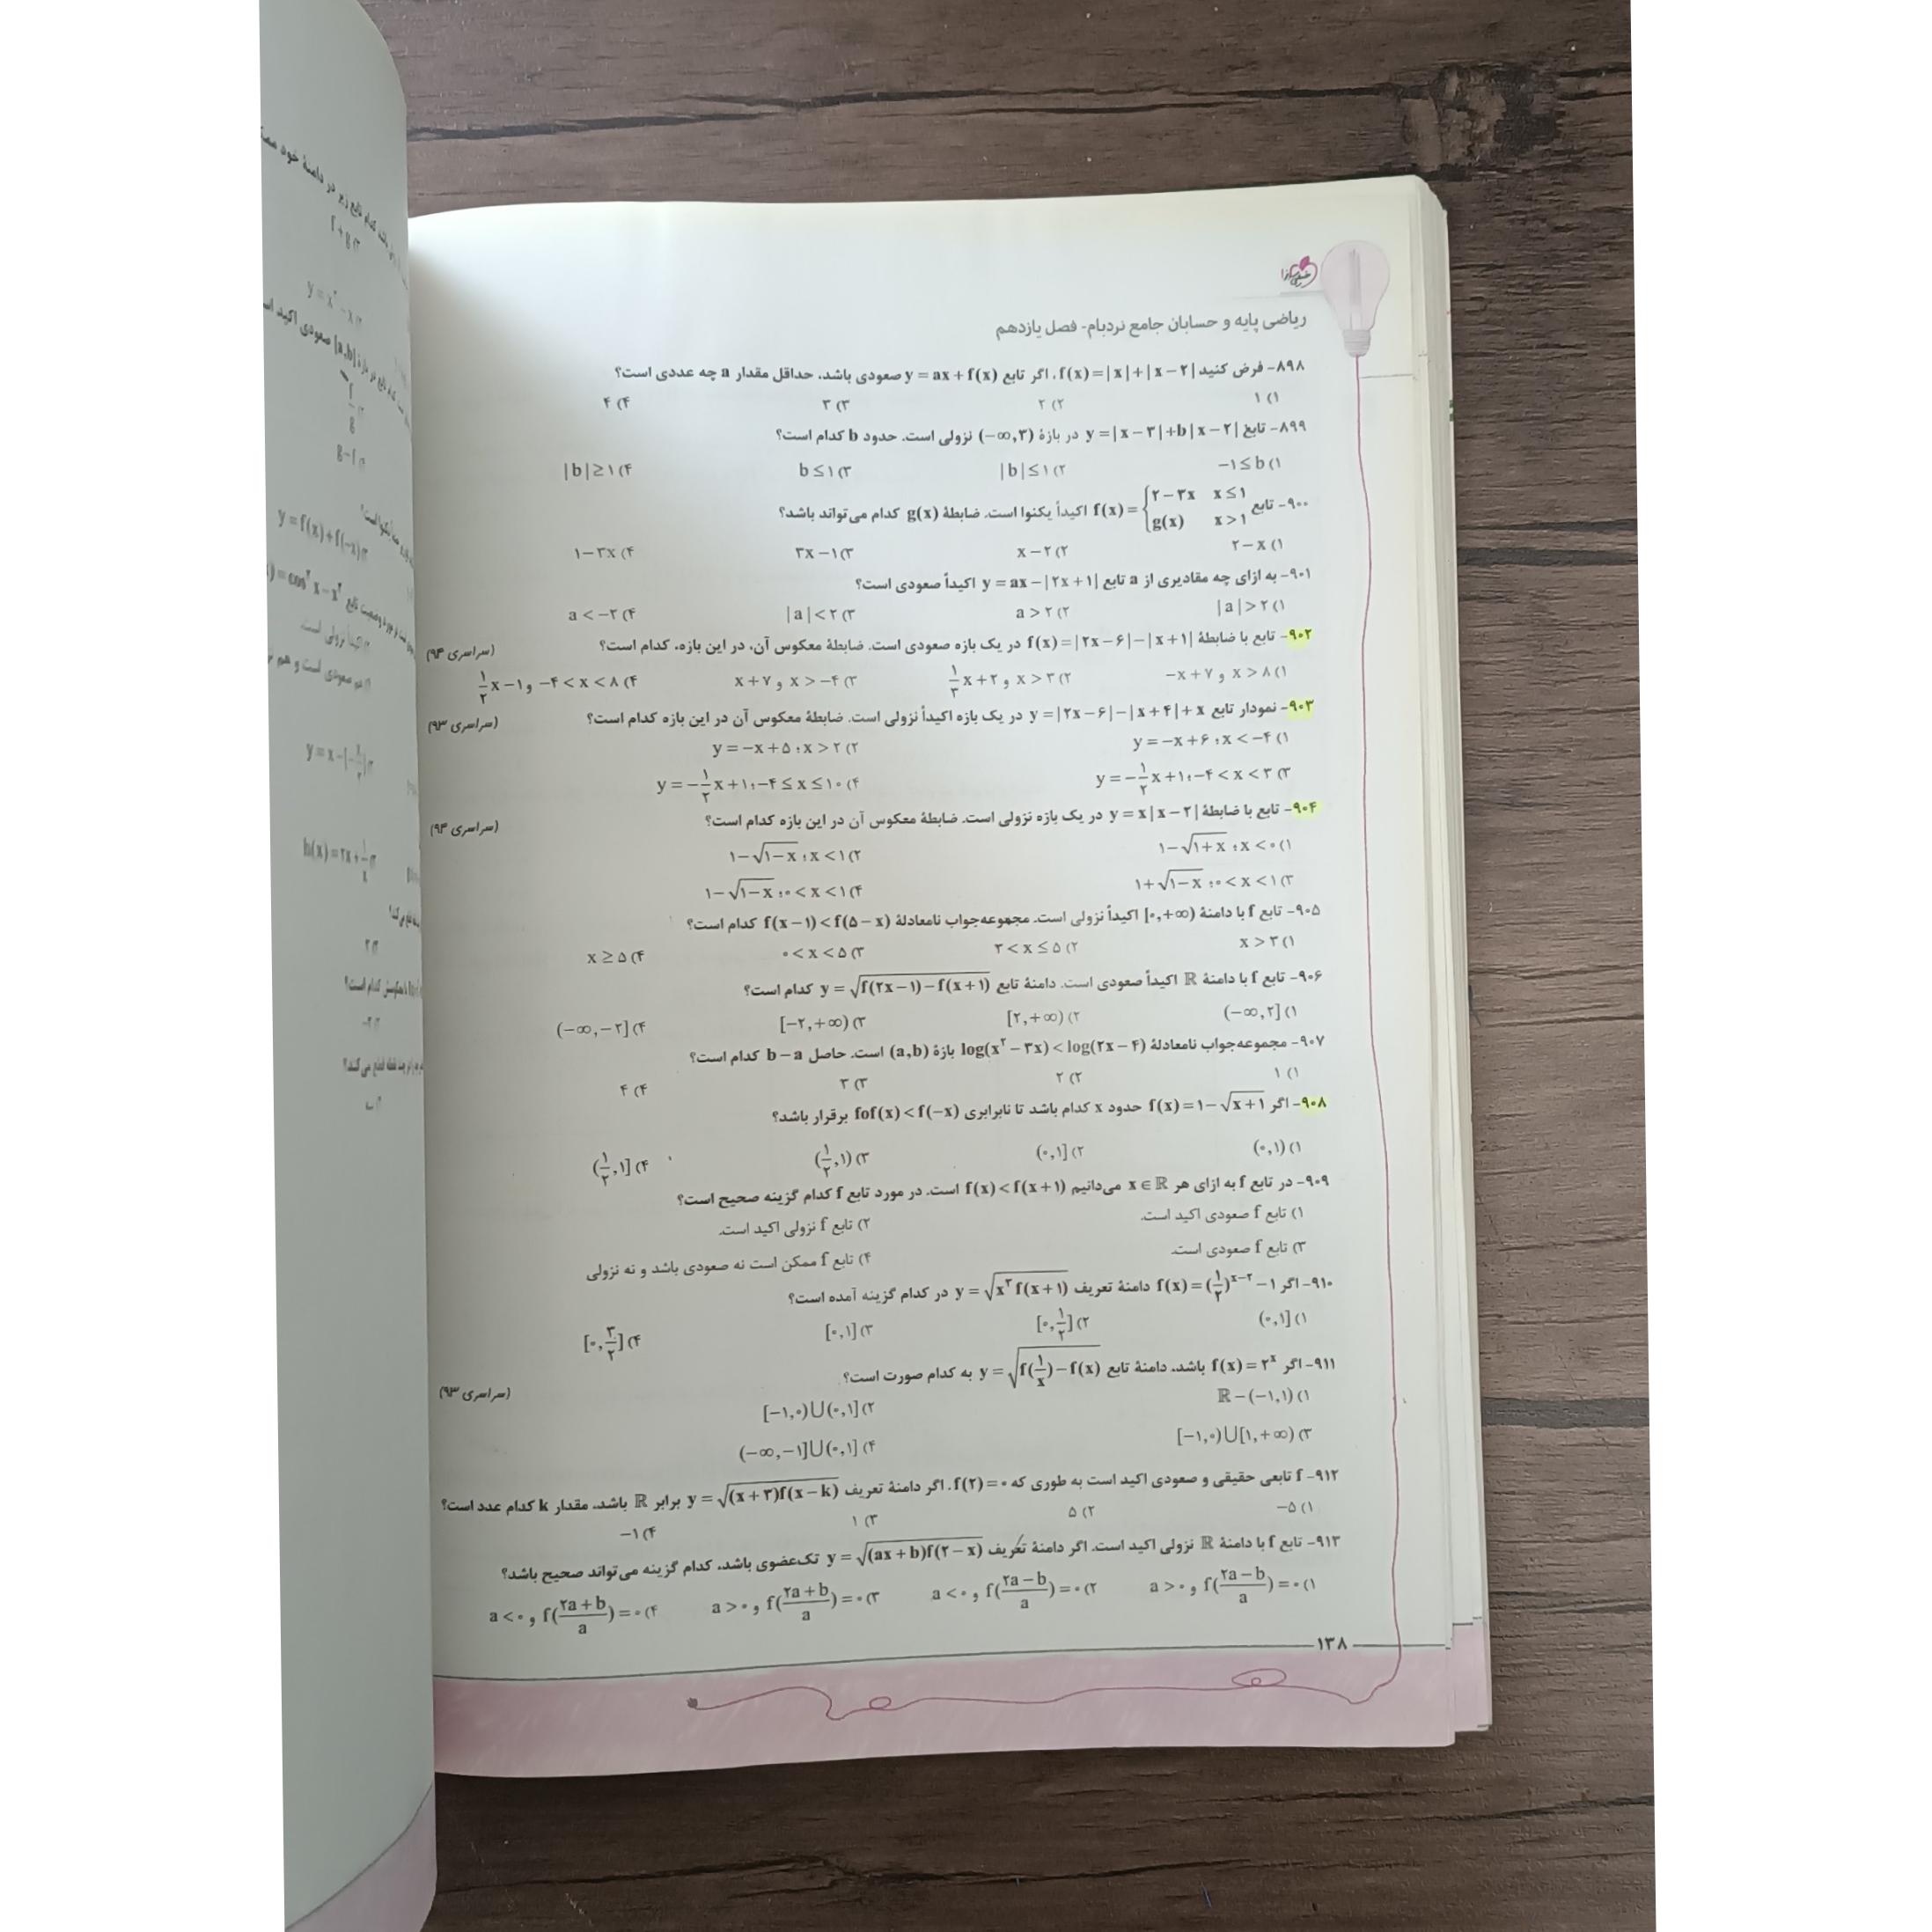 ریاضی پایه و حسابان جامع نردبام- فصل یازدهم
۸۹۸- فرض کنید f(x)=|x|+|x−۲|، اگر تابع y=ax+f(x) صعودی باشد، حداقل مقدار a چه عددی است؟
۱) ۱ ۲) ۲ ۳) ۳ ۴) ۴
۸۹۹- تابع y=|x−۳|+b|x−۲| در بازهٔ (−∞,۳) نزولی است. حدود b کدام است؟
۱) −۱≤b ۲) |b|≤۱ ۳) b≤۱ ۴) |b|≥۱
۹۰۰- تابع f(x)={۲−۳x x≤۱ ; g(x) x>۱ اکیداً یکنوا است. ضابطهٔ g(x) کدام می‌تواند باشد؟
۱) ۲−x ۲) x−۲ ۳) ۳x−۱ ۴) ۱−۳x
۹۰۱- به ازای چه مقادیری از a تابع y=ax−|۲x+۱| اکیداً صعودی است؟
۱) |a|>۲ ۲) a>۲ ۳) |a|<۲ ۴) a<−۲
۹۰۲- تابع با ضابطهٔ f(x)=|۲x−۶|−|x+۱| در یک بازه صعودی است. ضابطهٔ معکوس آن، در این بازه، کدام است؟ (سراسری ۹۴)
۱) x>۸ و −x+۷ ۲) x>۳ و ۱/۳x+۲ ۳) x>−۴ و x+۷ ۴) −۴<x<۸ و ۱/۲x−۱
۹۰۳- نمودار تابع y=|۲x−۶|−|x+۴|+x در یک بازه اکیداً نزولی است. ضابطهٔ معکوس آن در این بازه کدام است؟ (سراسری ۹۳)
۱) y=−x+۶ ؛ x<−۴ ۲) y=−x+۵ ؛ x>۲
۳) y=−۱/۲x+۱ ؛ −۴<x<۳ ۴) y=−۱/۲x+۱ ؛ −۴≤x≤۱۰
۹۰۴- تابع با ضابطهٔ y=x|x−۲| در یک بازه نزولی است. ضابطهٔ معکوس آن در این بازه کدام است؟ (سراسری ۹۴)
۱) ۱−√(۱+x) ؛ x<۰ ۲) ۱−√(۱−x) ؛ x<۱
۳) ۱+√(۱−x) ؛ ۰<x<۱ ۴) ۱−√(۱−x) ؛ ۰<x<۱
۹۰۵- تابع f با دامنهٔ [۰,+∞) اکیداً نزولی است. مجموعه‌جواب نامعادلهٔ f(x−۱)<f(۵−x) کدام است؟
۱) x>۳ ۲) ۳<x≤۵ ۳) ۰<x<۵ ۴) x≥۵
۹۰۶- تابع f با دامنهٔ ℝ اکیداً صعودی است. دامنهٔ تابع y=√(f(۲x−۱)−f(x+۱)) کدام است؟
۱) (−∞,۲] ۲) [۲,+∞) ۳) [−۲,+∞) ۴) (−∞,−۲]
۹۰۷- مجموعه‌جواب نامعادلهٔ log(x²−۳x)<log(۲x−۴) بازهٔ (a,b) است. حاصل b−a کدام است؟
۱) ۱ ۲) ۲ ۳) ۳ ۴) ۴
۹۰۸- اگر f(x)=۱−√(x+۱) حدود x کدام باشد تا نابرابری fof(x)<f(−x) برقرار باشد؟
۱) (۰,۱) ۲) (۰,۱] ۳) (۱/۲,۱) ۴) (۱/۲,۱]
۹۰۹- در تابع f به ازای هر x∈ℝ می‌دانیم f(x)<f(x+۱) است. در مورد تابع f کدام گزینه صحیح است؟
۱) تابع f صعودی اکید است. ۲) تابع f نزولی اکید است.
۳) تابع f صعودی است. ۴) تابع f ممکن است نه صعودی باشد و نه نزولی
۹۱۰- اگر f(x)=(۱/۲)^(x−۲)−۱ دامنهٔ تعریف y=√(x³f(x+۱)) در کدام گزینه آمده است؟
۱) (۰,۱] ۲) [۰,۱/۲] ۳) [۰,۱] ۴) [۰,۳/۲]
۹۱۱- اگر f(x)=۲^x باشد، دامنهٔ تابع y=√(f(۱/x)−f(x)) به کدام صورت است؟ (سراسری ۹۳)
۱) ℝ−(−۱,۱) ۲) [−۱,۰)∪(۰,۱]
۳) [−۱,۰)∪[۱,+∞) ۴) (−∞,−۱]∪(۰,۱]
۹۱۲- f تابعی حقیقی و صعودی اکید است به طوری که f(۲)=۰. اگر دامنهٔ تعریف y=√((x+۳)f(x−k)) برابر ℝ باشد، مقدار k کدام عدد است؟
۱) −۵ ۲) ۵ ۳) ۱ ۴) −۱
۹۱۳- تابع f با دامنهٔ ℝ نزولی اکید است. اگر دامنهٔ تعریف y=√((ax+b)f(۲−x)) تک‌عضوی باشد، کدام گزینه می‌تواند صحیح باشد؟
۱) f((۲a−b)/a)=۰ و a>۰ ۲) f((۲a−b)/a)=۰ و a<۰ ۳) f((۲a+b)/a)=۰ و a>۰ ۴) f((۲a+b)/a)=۰ و a<۰
۱۳۸